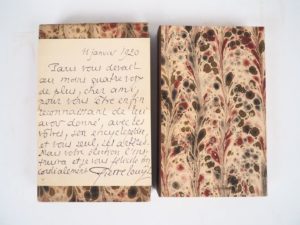 11 janvier 1920
Paris vous devait
au moins quatre voix
de plus, cher ami,
pour vous être enfin
reconnaissant de lui
avoir donné, avec les
vôtres, son encyclopédie,
et vous seul, ces
Mais votre élection
et je vous félicite
cordialement. Pierre Louÿs